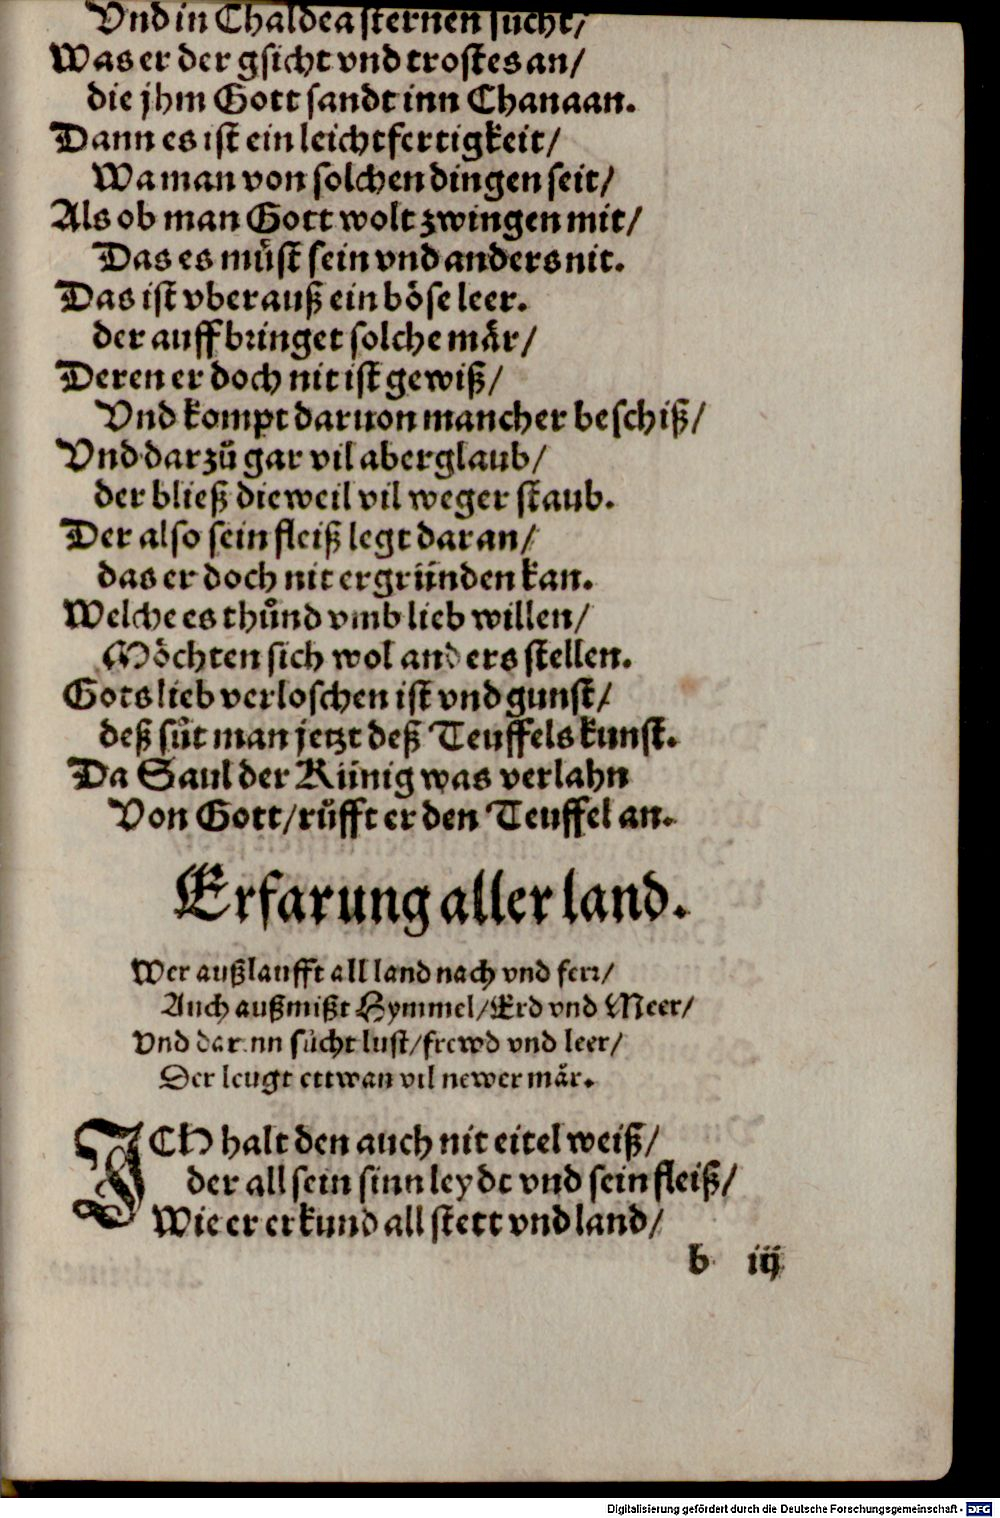 Vnd in Chaldea sternen sücht/
Was er der gsicht vnd trostes an/
die jhm Gott sandt inn Chanaan.
Dann es ist ein leichtfertigkeit/
Wa man von solchen dingen seit/
Als ob man Gott wolt zwingen mit/
Das es müst sein vnd anders nit.
Das ist vberauß ein böse leer.
der auffbringet solche mär/
Deren er doch nit ist gewiß/
Vnd kompt daruon mancher beschiß/
Vnd darzů gar vil aberglaub/
der bließ dieweil vil weger staub.
Der also sein fleiß legt daran/
das er doch nit ergründen kan.
Welche es thůnd vmb lieb willen/
Möchten sich wol anders stellen.
Gots lieb verloschen ist vnd gunst/
deß sůt man jetzt deß Teuffels kunst.
Da Saul der Künig was verlahn
Von Gott/rüfft er den Teuffel an.
Erfarung aller land.
Wer außlaufft all land nach vnd ferr/
Auch außmißt Hymmel/Erd vnd Meer/
Vnd darinn sücht lust/frewd vnd leer/
Der leugt ettwan vil newer mär.
ICH halt den auch nit eitel weiß/
der all sein sinn leydt vnd sein fleiß/
Wie er erkund all stett vnd land/
b iij
Digitalisierung gefördert durch die Deutsche Forschungsgemeinschaft - DFG